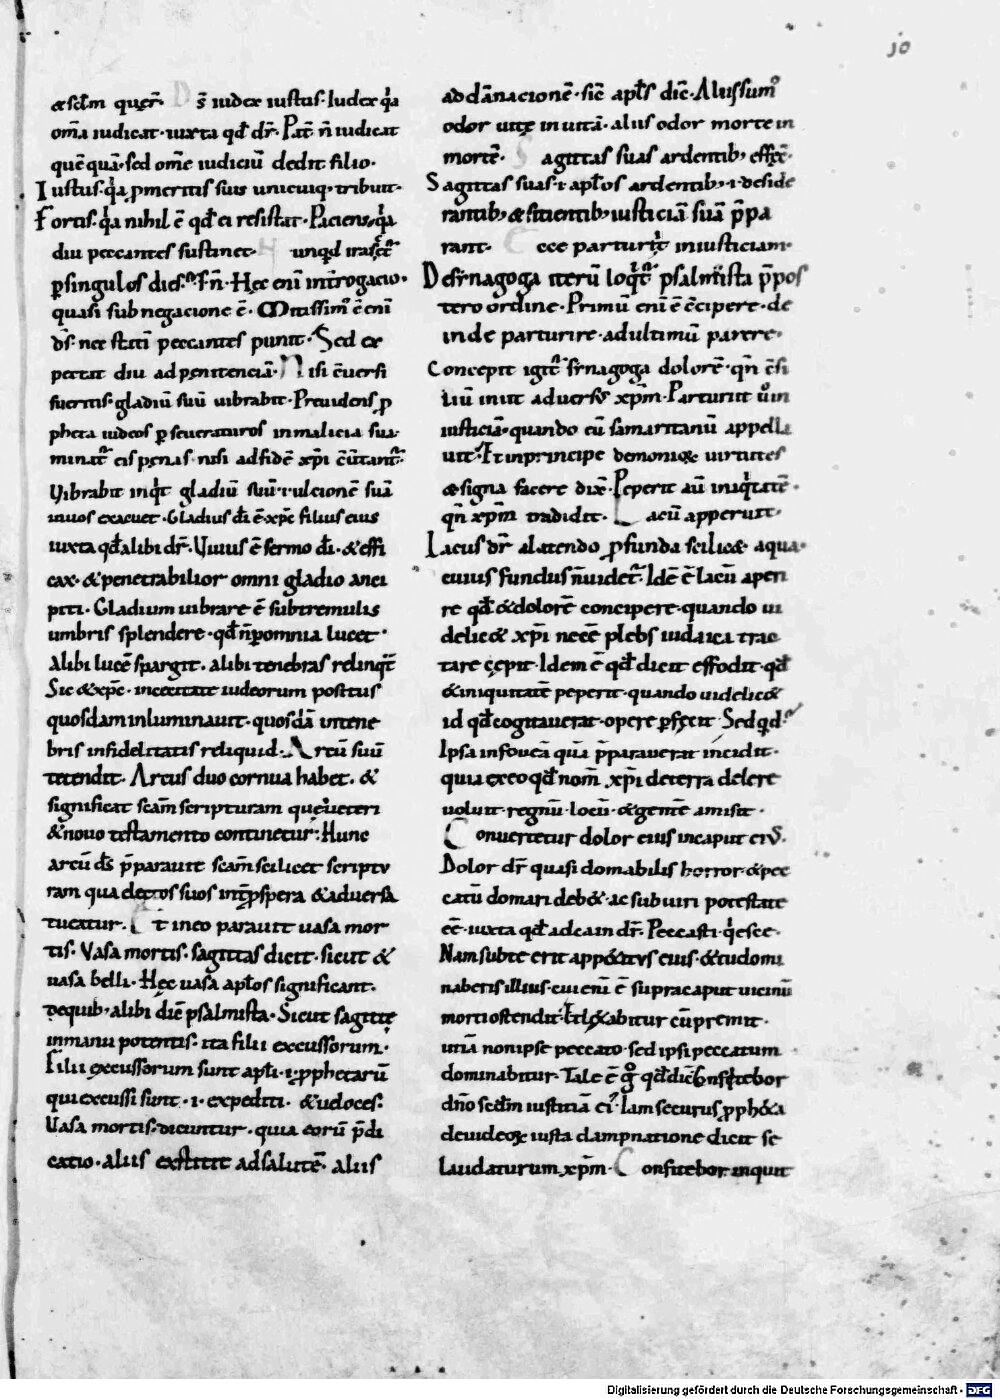 10
&scd̄m querł. Ds̄ iudex iustus. Iudex q̇a
om̄a iudicat. iuxta qd̄ dr̄. Pat̄ n̄ iudicat
quēquā. sed om̄e iudiciū dedit filio.
Iustus. q̇a p meritis suis unicuiq; tribuit.
Fortis. q̇a nihil ē qd̄ ei resistat. Paciens. q̇a
diu peccantes sustinet. Nunquid irascit̄
p singulos dies. s. n̄. Hęc eni int̄rogacio.
quasi sub negacione ē. Mitissim᷒ ē eni
ds̄. nec statī peccantes punit. Sed ex
pectat diu ad penitenciā. Nisi c̄uersi
fueritis. gladiū suū uibrabit. Preuidens p
pheta iudeos pseueraturos in malicia sua.
minat̄ eis penas. nisi ad fidē xp̄i c̄uertant̄.
Vibrabit inq̇t gladiū suū .i. ulcionē suā
in uos exacuet. Gladius dī ē xp̄c filius eius
iuxta qd̄ alibi dr̄. Viuus ē sermo dī. & effi
cax. & penetrabilior omni gladio anci
piti. Gladium uibrare ē sub tremulis
umbris splendere. qd̄ n̄ p omnia lucet.
Alibi lucē spargit. alibi tenebras relinq̇t
Sic & xp̄c. in cecitate iudeorum positus
quosdam inluminauit. quosdā in tene
bris infidelitatis reliquid. Arcū suū
tetendit. Arcus duo cornua habet. &
significat scam̄ scripturam que & ueteri
& nouo testamento continetur: Hunc
arcū ds̄ p̄parauit scam̄ scilicet scriptu
ram qua electos suos int̄ pspera & aduersa
tueatur. Et in eo parauit uasa mor
tis. Vasa mortis. sagittas dicit. sicut &
uasa belli. Hęc uasa apłos significant.
de quib; alibi dic̄ psalmista. Sicut sagitte
in manu potentis. ita filii excussorum.
Filii excussorum sunt apłi .i. pphetarū
qui excussi sunt .i. expediti. & udoces.
Vasa mortis. dicuntur. quia eorū p̄di
catio. aliis exstitit ad salutē. aliis
ad dānacionē. sic̄ apłs dic̄. Aliis sum᷒
odor uite in uitā. aliis odor morte in
mortē. Sagittas suas ardentib; effec̄.
Sagittas suas .i. apłos ardentib; .i. deside
rantib; & sitientib; iusticiā suā p̄pa
rant. Ecce parturiit̄ iniusticiam.
De synagoga iterū loq̇t̄ psalmista p̄pos
tero ordine. Primū eni ē c̄cipere. de
inde parturire. ad ultimū parere.
Concepit igit̄ synagoga dolorē. qn̄ c̄si
liū iniit aduersus xp̄m. Parturiit ů in
iusticiā. quando eū samaritanū appella
uit. Et in principe demoniox uirtutes
& signa facere dix̄. Peperit aū iniq̇tatē.
qn̄ xp̄m tradidit. Lacū apperuit.
Lacus dr̄ a latendo pfunda scilic& aqua.
cuius fundus n̄ uidet̄. Idē ē lacū aperi
re qd̄ & dolorē concipere. quando ui
delic& xp̄i necē plebs iudaica trac
tare cępit. Idem ē qd̄ dicit effodit. qd̄
& iniquitatē peperit. quando uidelic&
id qd̄ cogitauerat. opere pfecit. Sed qd̄.
Ipsa in foueā quā p̄parauerat incidit.
quia ex eo qd̄ nom̄ xp̄i de terra delere
uoluit. regnū. locū. & gentē amisit.
Conuertetur dolor eius in caput eius.
Dolor dr̄ quasi domabilis horror. & pec
catū domari deb&. ac sub uiri potestate
ec̄. iuxta qd̄ ad cain dr̄. Peccasti. q̇esce.
Nam sub te erit app&itus eius. & tu domi
naberis illius. cui eni ē supra caput uicinū
morti ostendit. Et l&abitur cū premit.
utiā non ipse peccato. sed ipsi peccatum
dominabitur. Tale ē g̊ qd̄ dic̄ Confitebor
dn̄o scd̄m iusticiā ei᷒. Iam securus pph&a
de uideox iusta dampnatione dicit se
laudaturum xp̄m. Confitebor inquit
Digitalisierung gefördert durch die Deutsche Forschungsgemeinschaft - DFG